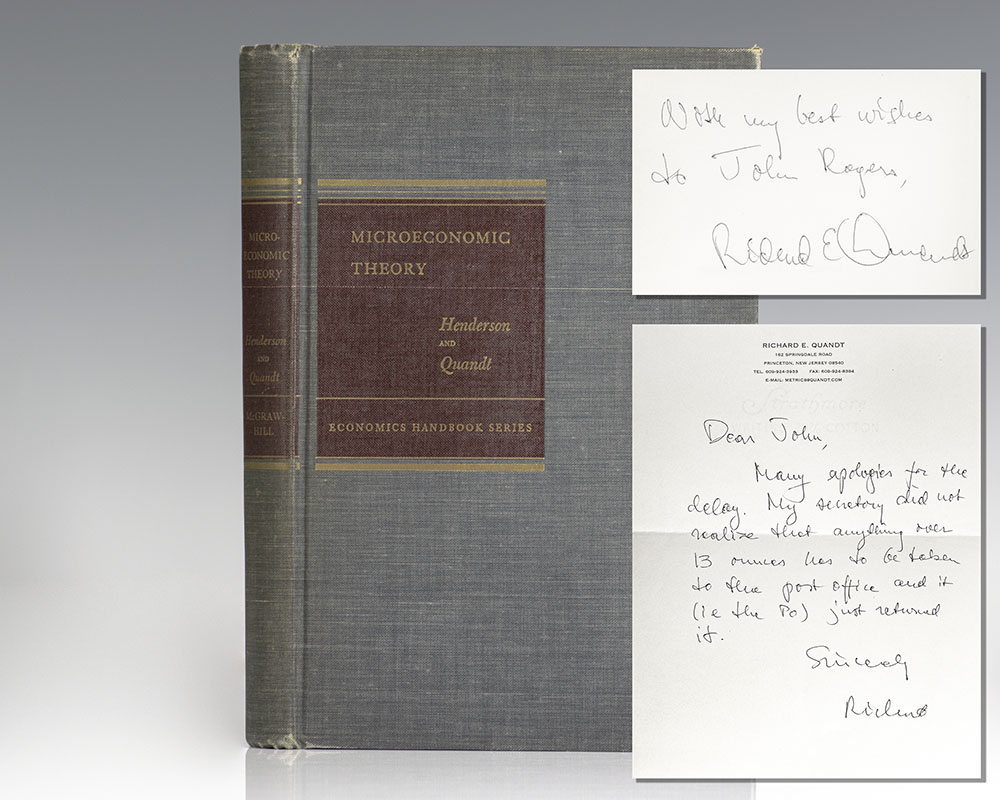 MICRO-
ECONOMIC
THEORY
Henderson
AND
Quandt
McGRAW-
HILL
MICROECONOMIC
THEORY
Henderson
AND
Quandt
ECONOMICS HANDBOOK SERIES
With my best wishes
to John Rogers,
Richard E Quandt
RICHARD E. QUANDT
162 SPRINGDALE ROAD
PRINCETON, NEW JERSEY 08540
TEL. 609-924-3933 FAX: 609-924-8394
E-MAIL: METRICS@QUANDT.COM
Strathmore
COTTON
Dear John,
Many apologies for the
delay. My secretary did not
realize that anything over
13 ounces has to be taken
to the post office and it
(ie the PO) just returned
it.
Sincerely
Richard